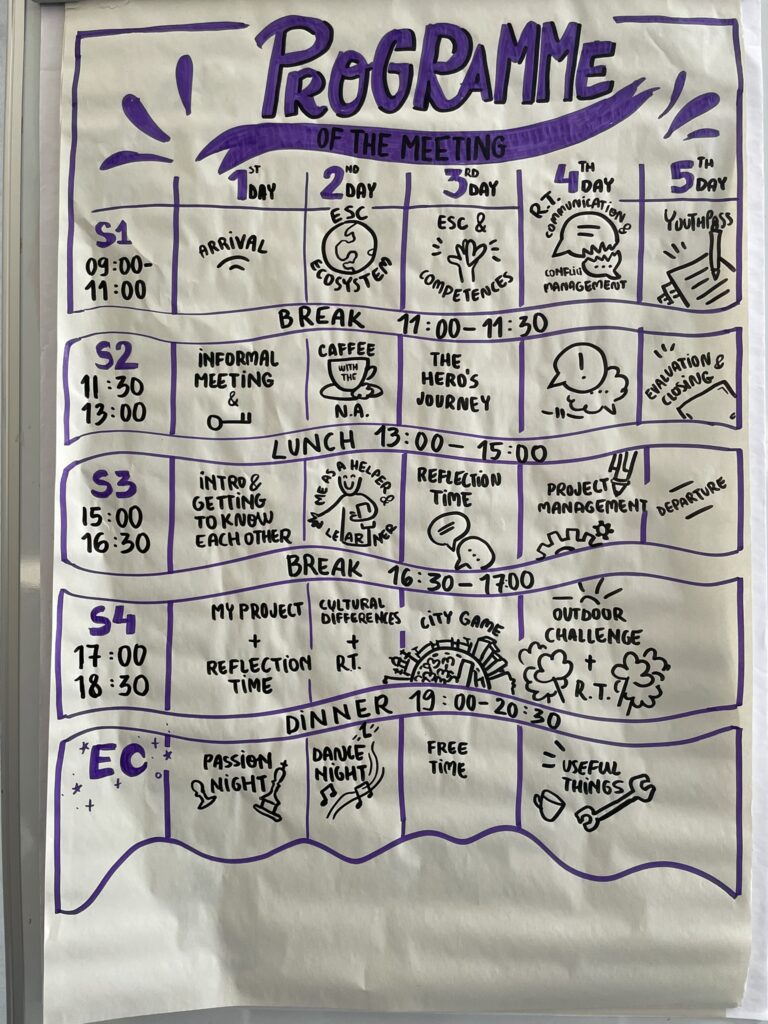 PROGRAMME
OF THE MEETING
1ST DAY
2ND DAY
3RD DAY
4TH DAY
5TH DAY
S1
09:00-
11:00
ARRIVAL
ESC
ECOSYSTEM
ESC &
COMPETENCES
R.T.
COMMUNICATION &
CONFLICT
MANAGEMENT
YOUTHPASS
BREAK 11:00-11:30
S2
11:30
13:00
INFORMAL
MEETING
&
CAFFEE
WITH
THE
N.A.
THE
HERO'S
JOURNEY
!
EVALUATION &
CLOSING
LUNCH 13:00-15:00
S3
15:00
16:30
INTRO &
GETTING
TO KNOW
EACH OTHER
ME AS A HELPER &
REFLECTION
TIME
PROJECT
MANAGEMENT
DEPARTURE
BREAK 16:30-17:00
S4
17:00
18:30
MY PROJECT
+
REFLECTION
TIME
CULTURAL
DIFFERENCES
+
R.T.
CITY GAME
OUTDOOR
CHALLENGE
+
R.T.
DINNER 19:00-20:30
EC
PASSION
NIGHT
DANCE
NIGHT
FREE
TIME
USEFUL
THINGS